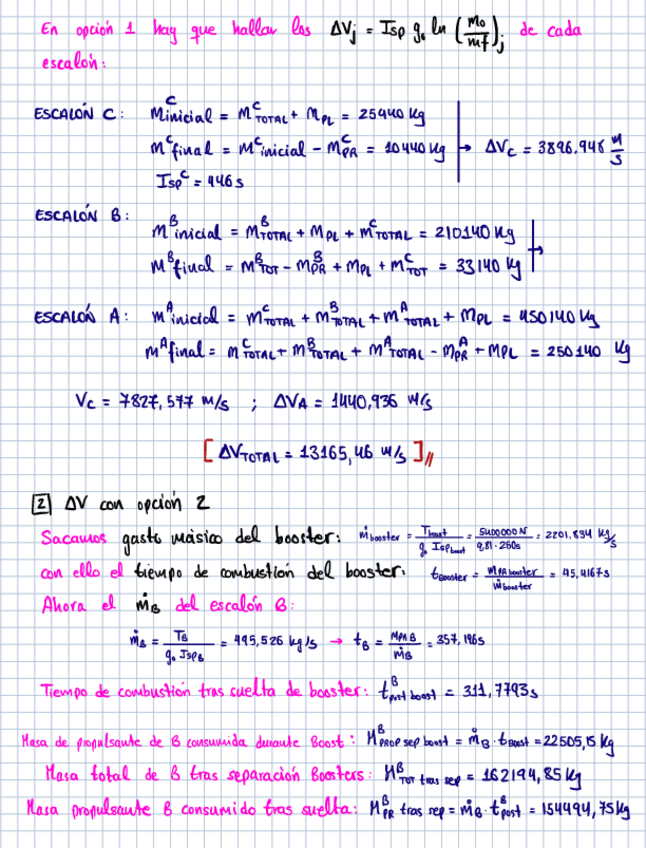 En opción 1 hay que hallar los ΔVj = Isp g₀ ln (m₀/mf)j de cada
escalón:
ESCALÓN C: M^C inicial = M^C TOTAL + M PL = 25440 kg
M^C final = M^C inicial - M^C PR = 10440 kg → ΔVc = 3896.948 m/s
Isp^C = 446 s
ESCALÓN B:
M^B inicial = M^B TOTAL + M PL + M^C TOTAL = 210140 kg
M^B final = M^B TOT - M^B PR + M PL + M^C TOT = 33140 kg →
ESCALÓN A: M^A inicial = M^C TOTAL + M^B TOTAL + M^A TOTAL + M PL = 450140 kg
M^A final = M^C TOTAL + M^B TOTAL + M^A TOTAL - M^A PR + M PL = 250140 kg
Vc = 7827,577 m/s ; ΔVA = 1440,936 m/s
[ΔV TOTAL = 13165,46 m/s]//
2 ΔV con opción 2
Sacamos gasto másico del booster: ṁ booster = T boost / g₀ Isp boost = 5400000 N / 9,81·250s = 2201,834 kg/s
con ello el tiempo de combustión del booster. t booster = M PR booster / ṁ booster = 45,4167s
Ahora el ṁB del escalón B:
ṁB = TB / g₀ IspB = 495,526 kg/s → tB = M PR B / ṁB = 357,196s
Tiempo de combustión tras suelta de booster: t^B post boost = 311,7793s
Masa de propulsante de B consumida durante Boost: M^B PROP sep boost = ṁB · t Boost = 22505,15 kg
Masa total de B tras separación Boosters: M^B TOT tras sep = 162194,85 kg
Masa propulsante B consumido tras suelta: M^B PR tras sep = ṁB · t^B post = 154494,75 kg